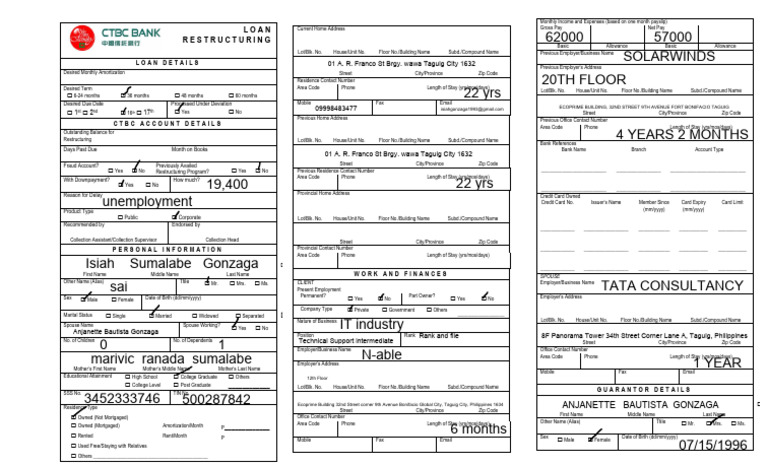 CTBC BANK
中國信託銀行
LOAN RESTRUCTURING
LOAN DETAILS
Desired Monthly Amortization
Desired Term
6-24 months 36 months 48 months 60 months
Desired Due Date Processed Under Deviation
1st 2nd 16th 17th Yes No
CTBC ACCOUNT DETAILS
Outstanding Balance for Restructuring
Days Past Due Month on Books
Fraud Account? Yes No Previously Availed Restructuring Program? Yes No
With Downpayment? Yes No How much? 19,400
Reason for Delay
unemployment
Product Type
Public Corporate
Recommended by Endorsed by
Collection Assistant/Collection Supervisor Collection Head
PERSONAL INFORMATION
Isiah Sumalabe Gonzaga
First Name Middle Name Last Name
Other Name (Alias) sai Title Mr. Mrs. Ms.
Sex Male Female Date of Birth (dd/mm/yyyy)
Marital Status Single Married Widowed Separated
Spouse Name Spouse Working? Yes No
Anjanette Bautista Gonzaga
No. of Children 0 No. of Dependents 1
marivic ranada sumalabe
Mother's First Name Mother's Middle Name Mother's Last Name
Educational Attainment High School College Graduate Others
College Level Post Graduate
SSS No. 3452333746 TIN No. 500287842
Residence Type
Owned (Not Mortgaged)
Owned (Mortgaged) Amortization/Month P
Rented Rent/Month P
Used Free/Staying with Relatives
Others
Current Home Address
Lot/Blk. No. House/Unit No. Floor No./Building Name Subd./Compound Name
01 A. R. Franco St Brgy. wawa Taguig City 1632
Street City/Province Zip Code
Residence Contact Number
Area Code Phone Length of Stay (yrs/mos/days)
22 yrs
Mobile Fax Email
09998483477
Previous Home Address
Lot/Blk. No. House/Unit No. Floor No./Building Name Subd./Compound Name
01 A. R. Franco St Brgy. wawa Taguig City 1632
Street City/Province Zip Code
Previous Residence Contact Number
Area Code Phone Length of Stay (yrs/mos/days)
22 yrs
Provincial Home Address
Lot/Blk. No. House/Unit No. Floor No./Building Name Subd./Compound Name
Street City/Province Zip Code
Provincial Contact Number
Area Code Phone Length of Stay (yrs/mos/days)
WORK AND FINANCES
CLIENT
Present Employment
Permanent? Yes No Part Owner? Yes No
Company Type Private Government Others
Nature of Business IT industry
Position Rank Rank and file
Technical Support Intermediate
Employer/Business Name N-able
Employer's Address
12th Floor
Lot/Blk. No. House/Unit No. Floor No./Building Name Subd./Compound Name
Ecoprime Building 32nd Street corner 9th Avenue Bonifacio Global City, Taguig City, Philippines 1634
Street City/Province Zip Code
Office Contact Number
Area Code Phone Length of Stay (yrs/mos/days)
6 months
Mobile Fax Email
Monthly Income and Expenses (based on one month payslip)
Gross Pay 62000 Net Pay 57000
Basic Allowance Basic Allowance
Previous Employer/Business Name SOLARWINDS
Previous Employer's Address
20TH FLOOR
Lot/Blk. No. House/Unit No. Floor No./Building Name Subd./Compound Name
ECOPRIME BUILDING, 32ND STREET 9TH AVENUE FORT BONIFACIO TAGUIG
Street City/Province Zip Code
Previous Office Contact Number
Area Code Phone Length of Stay (yrs/mos/days)
4 YEARS 2 MONTHS
Bank References
Bank Name Branch Account Type
Credit Card Owned
Credit Card No. Issuer's Name Member Since (mm/yyyy) Card Expiry (mm/yyyy) Card Limit
SPOUSE
Employer/Business Name TATA CONSULTANCY
Employer's Address
Lot/Blk. No. House/Unit No. Floor No./Building Name Subd./Compound Name
8F Panorama Tower 34th Street Corner Lane A, Taguig, Philippines
Street City/Province Zip Code
Office Contact Number
Area Code Phone Length of Stay (yrs/mos/days)
1 YEAR
Mobile Fax Email
GUARANTOR DETAILS
ANJANETTE BAUTISTA GONZAGA
First Name Middle Name Last Name
Other Name (Alias) Title Mr. Mrs. Ms.
Sex Male Female Date of Birth (dd/mm/yyyy)
07/15/1996